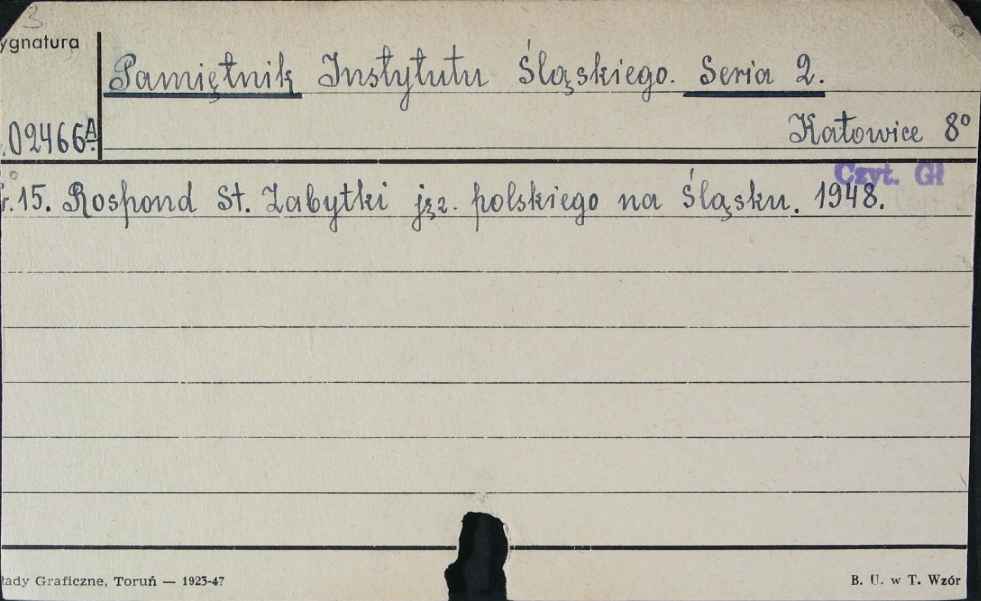 3
ygnatura
Pamiętnik Instytutu Śląskiego. Seria 2.
.02466A
Katowice 8°
Czyt. Gł
r.15. Rospond St. Zabytki jęz. polskiego na Śląsku. 1948.
łady Graficzne, Toruń — 1923-47
B. U. w T. Wzór